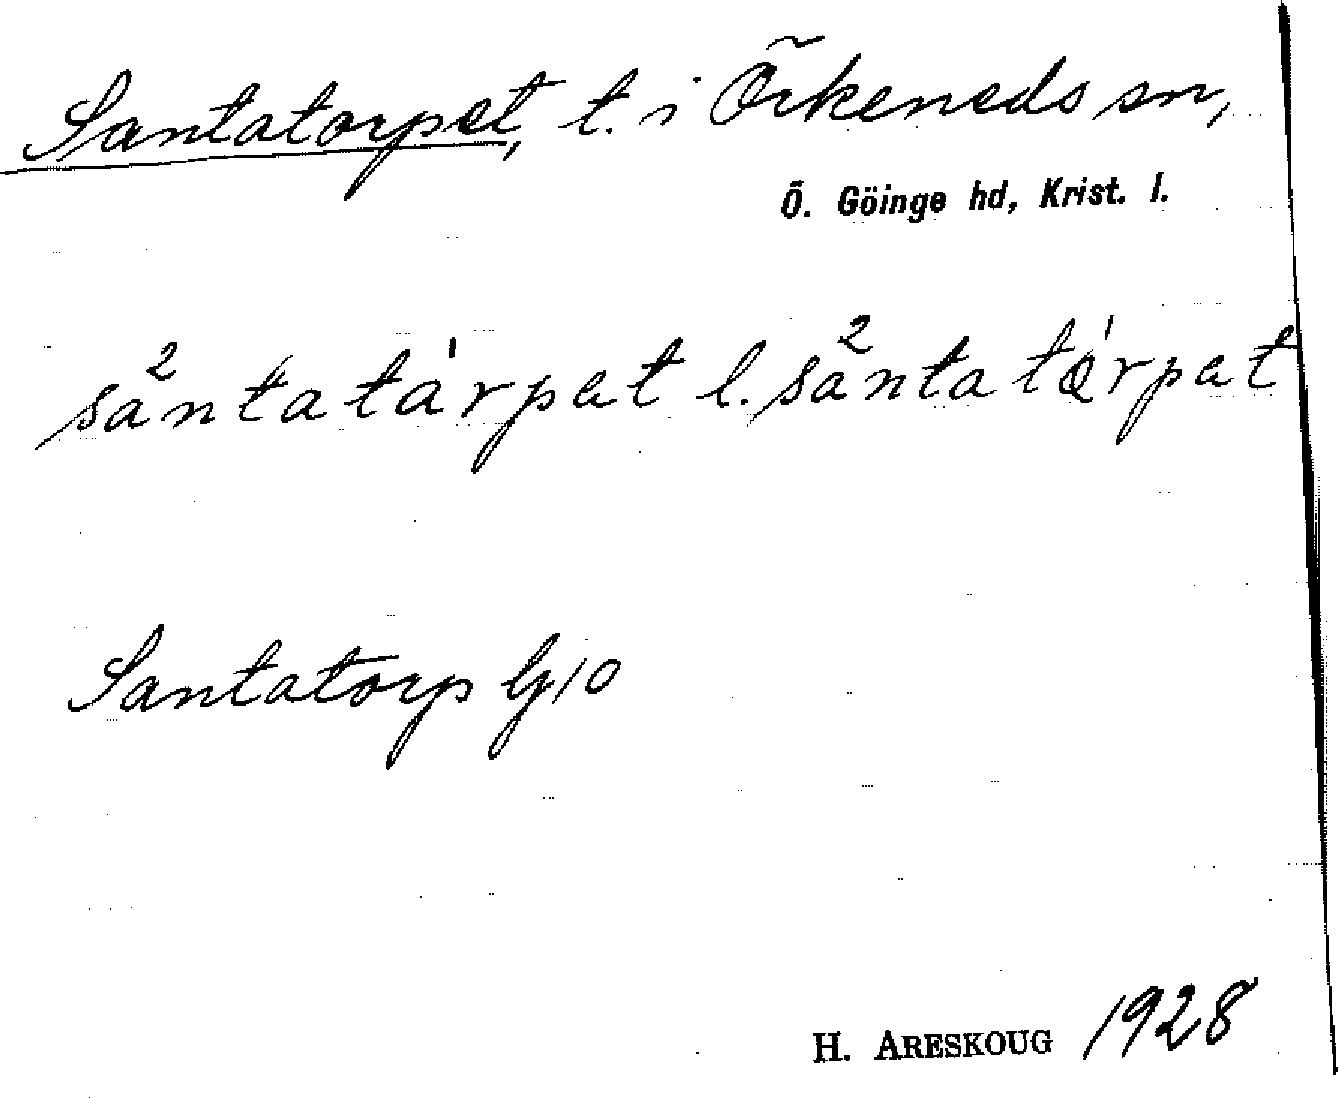 Santatorpet, t. i Örkeneds sn,
Ö. Göinge hd, Krist. l.
sa²ntata'rpet l. sa²ntatæ'rpet
Santatorp Gj 10
H. ARESKOUG 1928